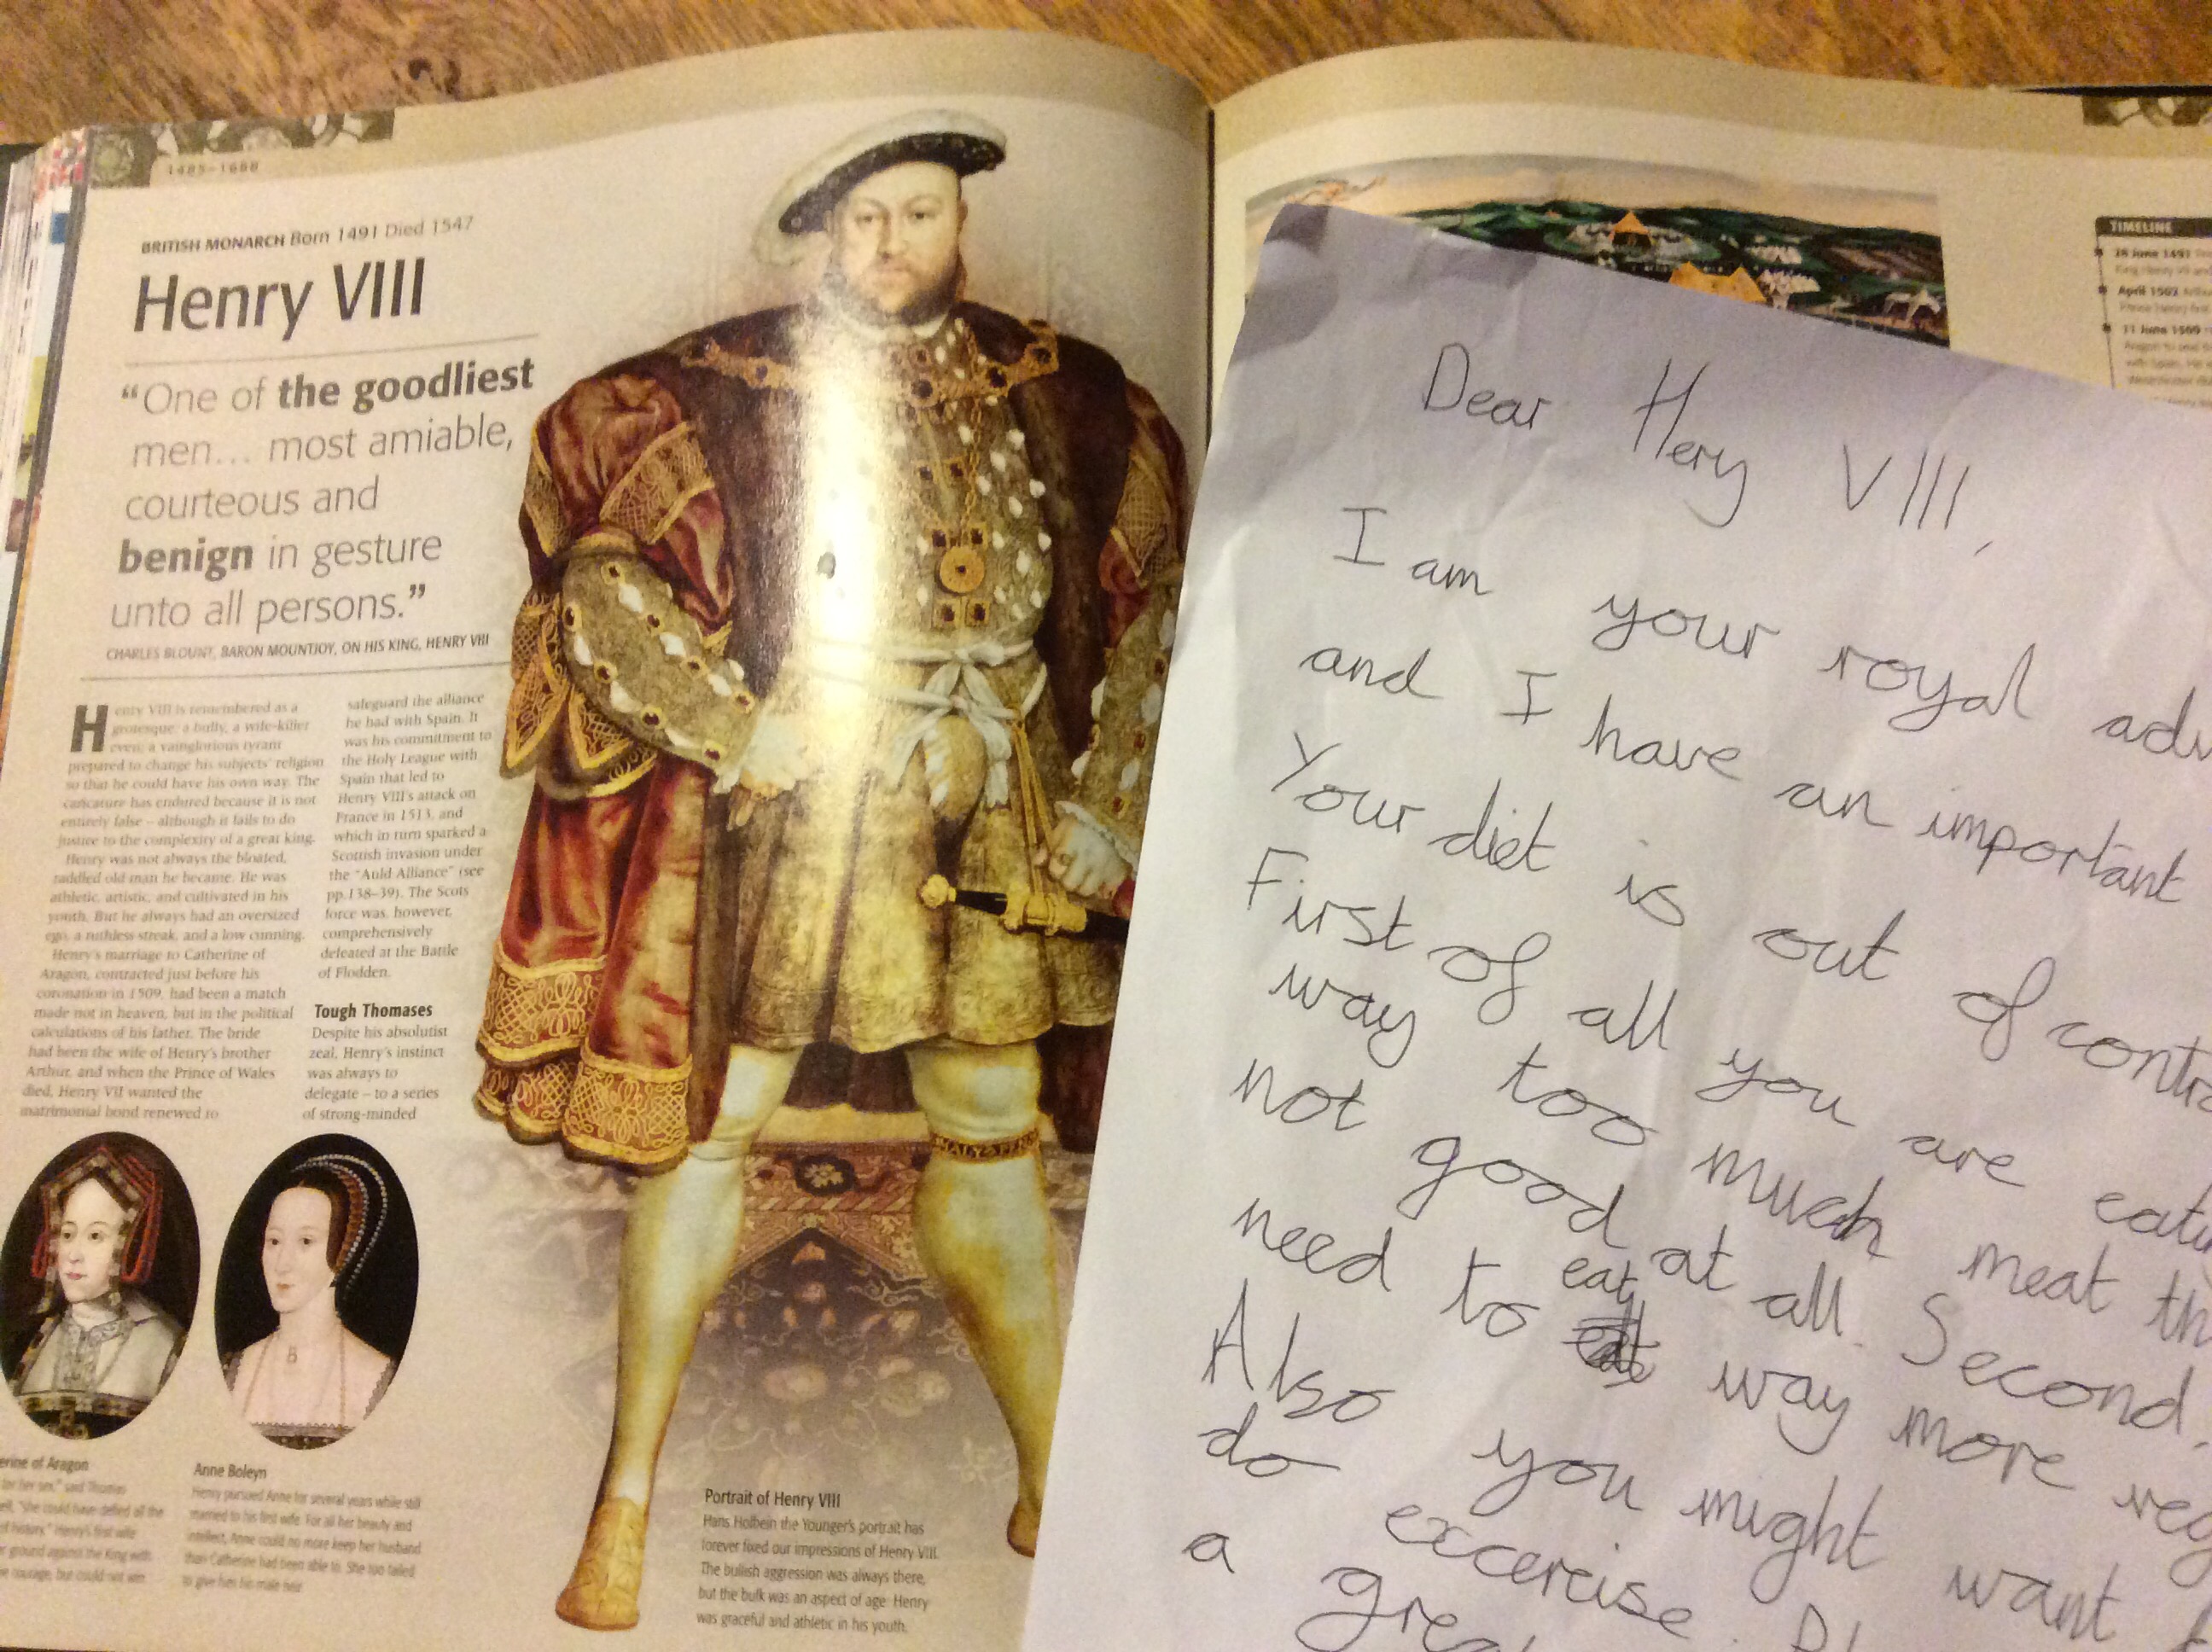 1485–1688
BRITISH MONARCH Born 1491 Died 1547
Henry VIII
“One of the goodliest
men... most amiable,
courteous and
benign in gesture
unto all persons.”
CHARLES BLOUNT, BARON MOUNTJOY, ON HIS KING, HENRY VIII
Henry VIII is remembered as a
grotesque: a bully, a wife-killer
even; a vainglorious tyrant
prepared to change his subjects’ religion
so that he could have his own way. The
caricature has endured because it is not
entirely false – although it fails to do
justice to the complexity of a great king.
Henry was not always the bloated,
raddled old man he became. He was
athletic, artistic, and cultivated in his
youth. But he always had an oversized
ego, a ruthless streak, and a low cunning.
Henry’s marriage to Catherine of
Aragon, contracted just before his
coronation in 1509, had been a match
made not in heaven, but in the political
calculations of his father. The bride
had been the wife of Henry’s brother
Arthur, and when the Prince of Wales
died, Henry VII wanted the
matrimonial bond renewed to
safeguard the alliance
he had with Spain. It
was his commitment to
the Holy League with
Spain that led to
Henry VIII’s attack on
France in 1513, and
which in turn sparked a
Scottish invasion under
the “Auld Alliance” (see
pp.138–39). The Scots
force was, however,
comprehensively
defeated at the Battle
of Flodden.
Tough Thomases
Despite his absolutist
zeal, Henry’s instinct
was always to
delegate – to a series
of strong-minded
erine of Aragon
for her sex,” said Thomas
ell, “she could have defied all the
of history.” Henry’s first wife
er ground against the King with
e courage, but could not win
Anne Boleyn
Henry pursued Anne for several years while still
married to his first wife. For all her beauty and
intellect, Anne could no more keep her husband
than Catherine had been able to. She too failed
to give him his male heir.
Portrait of Henry VIII
Hans Holbein the Younger’s portrait has
forever fixed our impressions of Henry VIII.
The bullish aggression was always there,
but the bulk was an aspect of age: Henry
was graceful and athletic in his youth.
TIMELINE
28 June 1491
King Henry VII
April 1502
Prince Henry
11 June 1509
Aragon
with Spain.
Westminster
Dear Hery VIII,
I am your royal adv
and I have an important
Your diet is out of contro
First of all you are eatin
way too much meat th
not good at all. Second,
need to eat way more veg
Also you might want
do excercise. Pl
a gre